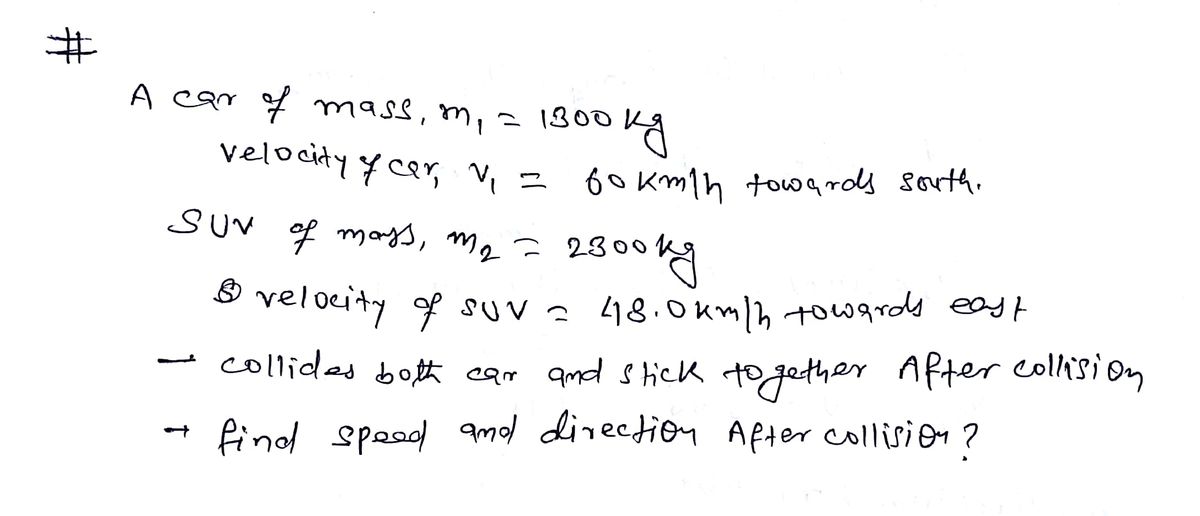 #
A car of mass, m₁ = 1300 kg
velocity of car, v₁ = 60 km/h towards south.
SUV of mass, m₂ = 2300 kg
velocity of SUV = 48.0 km/h towards east
→ collides both car and stick together After collision
→ find speed and direction After collision?